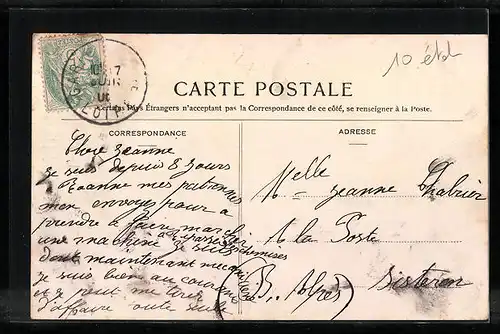 10 été
CARTE POSTALE
Certains Pays Étrangers n'acceptant pas la Correspondance de ce côté, se renseigner à la Poste.
CORRESPONDANCE
ADRESSE
Chère Jeanne
je suis depuis 8 jours
Roanne mes patronnes
mon envoyé pour a
prendre à faire marcher
une machine
à repasser les chemises
dont maintenant
je suis bien au courant
et je peut me tirer
d'affaire toute seule
Melle
Jeanne Chabrier
A la Poste
Sisteron
(B. Alpes)